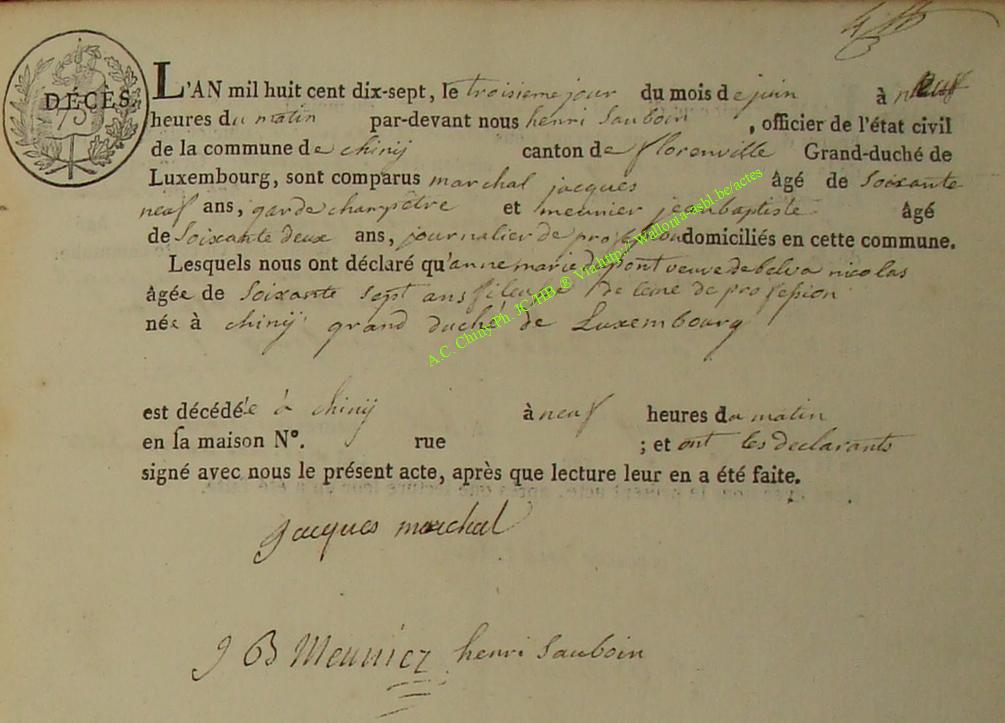 DÉCÈS.
L'AN mil huit cent dix-sept, le troisieme jour du mois de juin à neuf
heures du matin par-devant nous henri Sauboin, officier de l'état civil
de la commune de chinÿ canton de florenville Grand-duché de
Luxembourg, sont comparus marchal jacques âgé de Soixante
neuf ans, garde champêtre et meunier jean baptiste âgé
de Soixante deux ans, journalier de profession domiciliés en cette commune.
Lesquels nous ont déclaré qu'anne marie dupont veuve de belva nicolas
âgée de Soixante Sept ans fileuse de laine de profession
née à chinÿ grand duché de Luxembourg
est décédée à chinÿ à neuf heures du matin
en sa maison N°. rue ; et ont les declarants
signé avec nous le présent acte, après que lecture leur en a été faite.
jacques marchal
J B Meunier henri Sauboin
A.C. Chiny Ph. JC HB ® Via http:// Wallonia-asbl.be/actes